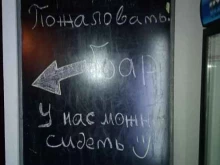 Пожаловать
Бар
У нас можн
сидеть